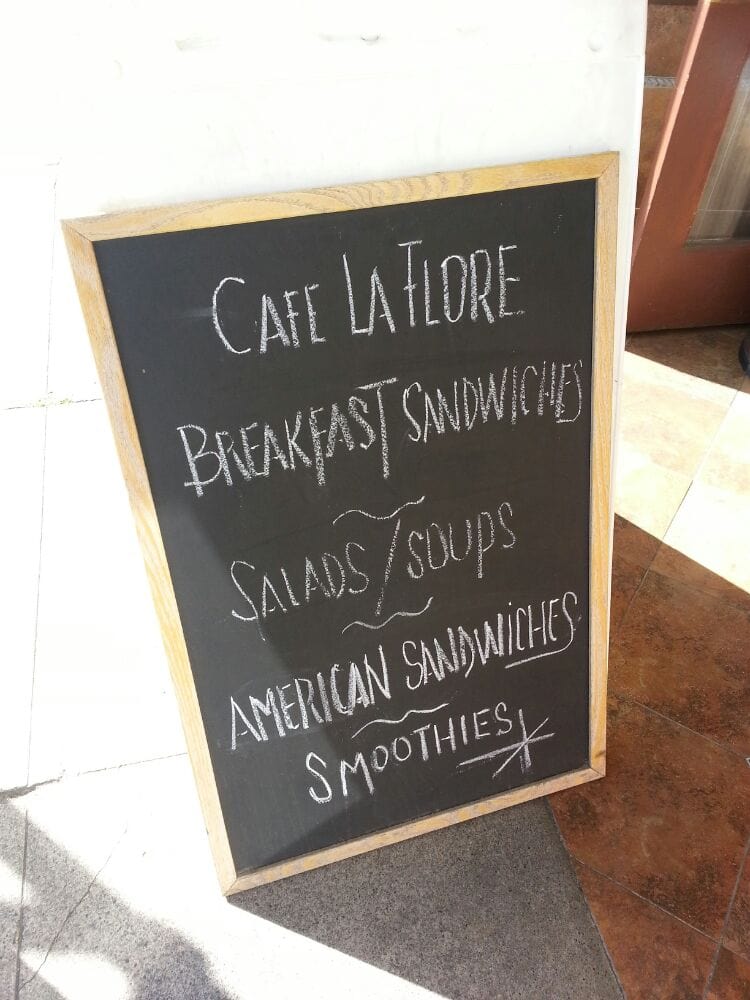 CAFE LA FLORE
BREAKFAST SANDWICHES
SALADS / SOUPS
AMERICAN SANDWICHES
SMOOTHIES